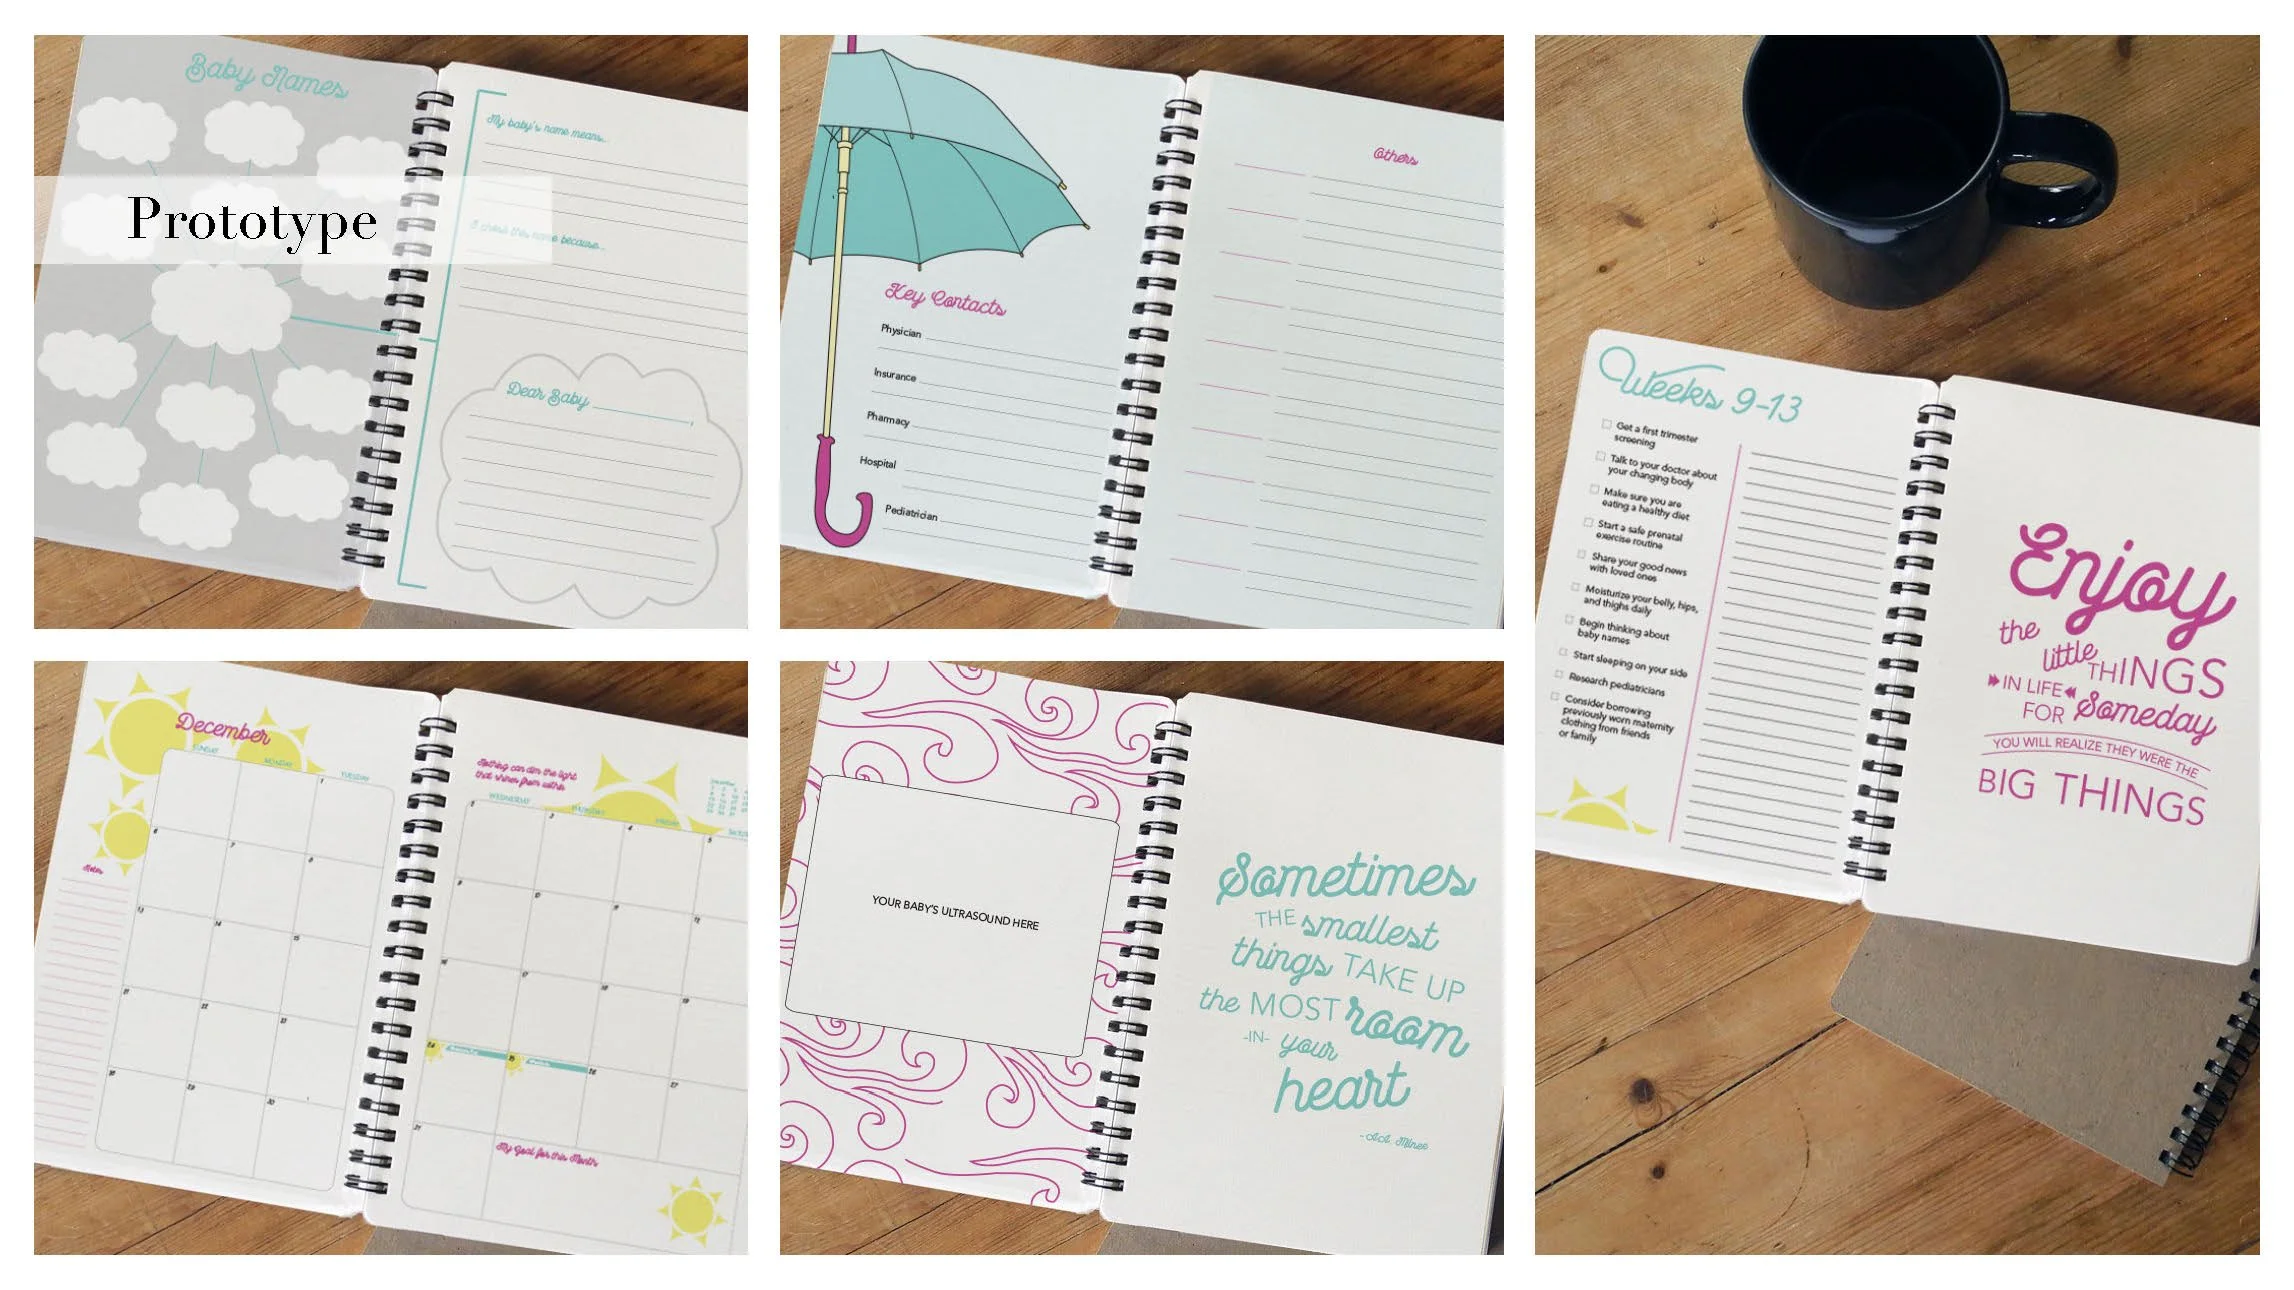 Baby Names
Prototype
My baby's name means...
I chose this name because...
Dear Baby
Key Contacts
Physician
Insurance
Pharmacy
Hospital
Pediatrician
Others
Weeks 9-13
Get a first trimester
screening
Talk to your doctor about
your changing body
Make sure you are
eating a healthy diet
Start a safe prenatal
exercise routine
Share your good news
with loved ones
Moisturize your belly, hips,
and thighs daily
Begin thinking about
baby names
Start sleeping on your side
Research pediatricians
Consider borrowing
previously worn maternity
clothing from friends
or family
Enjoy
the
little THINGS
IN LIFE
FOR Someday
YOU WILL REALIZE THEY WERE THE
BIG THINGS
December
SUNDAY
MONDAY
TUESDAY
Notes
1
6
7
8
13
14
15
21
22
23
28
29
30
Nothing can dim the light
that shines from within
WEDNESDAY
THURSDAY
FRIDAY
3
4
5
9
10
11
12
16
17
18
19
24
25
26
27
31
My Goal for this Month
YOUR BABY'S ULTRASOUND HERE
Sometimes
THE smallest
things TAKE UP
the MOST room
-IN- your
heart
- A.A. Milnee